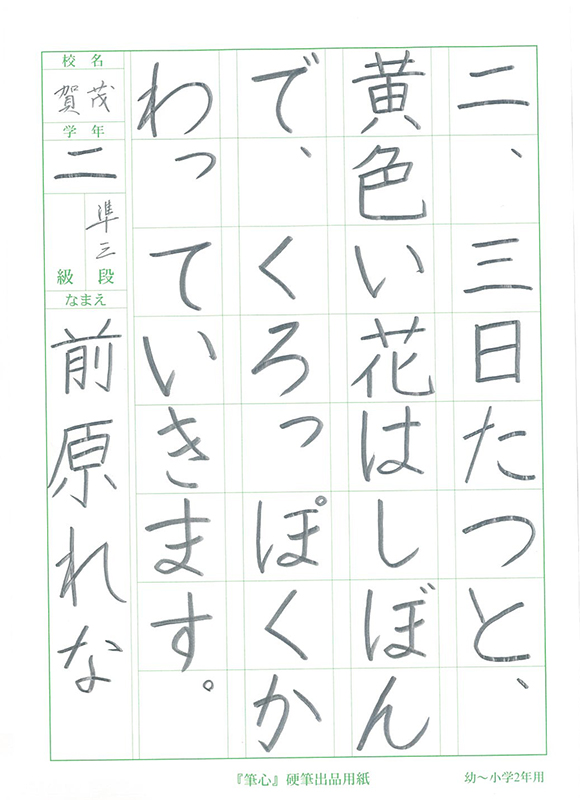 二、三日たつと、
黄色い花はしぼん
で、くろっぽくか
わっていきます。
校名
賀茂
学年
二
準三
段
級
なまえ
前原れな
『筆心』硬筆出品用紙
幼～小学2年用